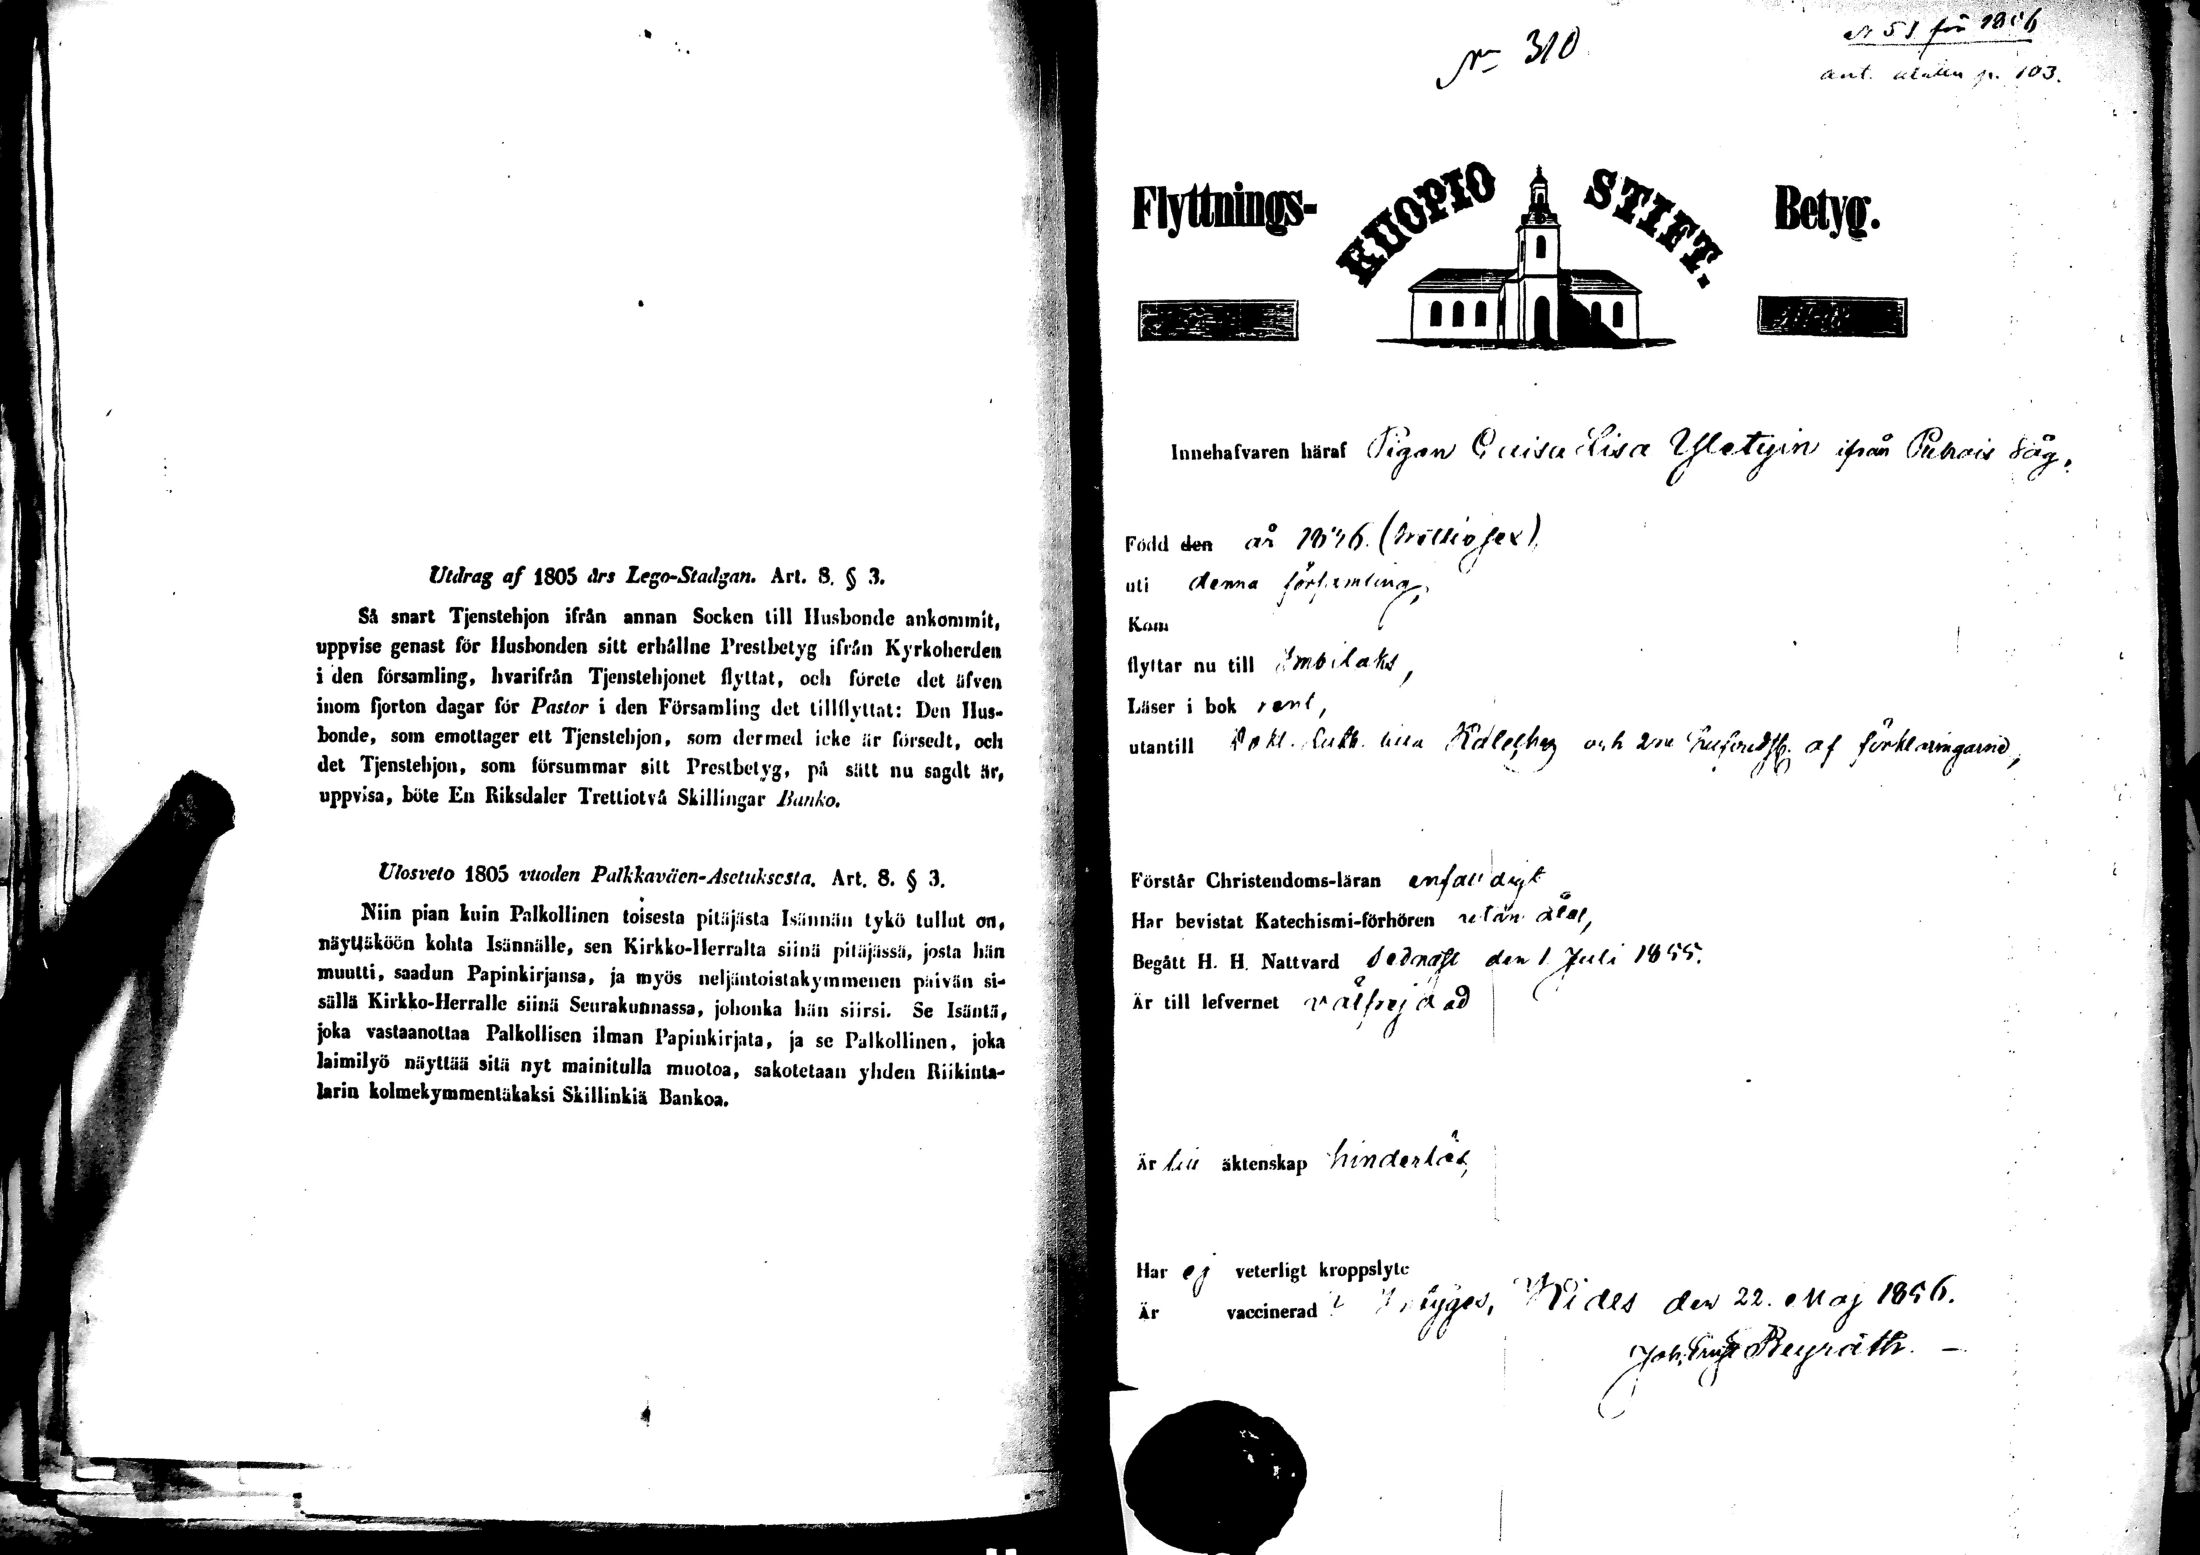 Utdrag af 1805 års Lego-Stadgan. Art. 8. § 3.
Så snart Tjenstehjon ifrån annan Socken till Husbonde ankommit,
uppvise genast för Husbonden sitt erhållne Prestbetyg ifrån Kyrkoherden
i den församling, hvarifrån Tjenstehjonet flyttat, och förete det äfven
inom fjorton dagar för Pastor i den Församling det tillflyttat: Den Hus-
bonde, som emottager ett Tjenstehjon, som dermed icke är försedt, och
det Tjenstehjon, som försummar sitt Prestbetyg, på sätt nu sagdt är,
uppvisa, böte En Riksdaler Trettiotvå Skillingar Banko.
Ulosveto 1805 vuoden Palkkaväen-Asetuksesta. Art. 8. § 3.
Niin pian kuin Palkollinen toisesta pitäjästa Isännän tykö tullut on,
näyttäköön kohta Isännälle, sen Kirkko-Herralta siinä pitäjässä, josta hän
muutti, saadun Papinkirjansa, ja myös neljäntoistakymmenen päivän si-
sällä Kirkko-Herralle siinä Seurakunnassa, johonka hän siirsi. Se Isäntä,
joka vastaanottaa Palkollisen ilman Papinkirjata, ja se Palkollinen, joka
laimilyö näyttää sitä nyt mainitulla muotoa, sakotetaan yhden Riikinta-
larin kolmekymmentäkaksi Skillinkiä Bankoa.
N 51 för 1856
No 310
ant. p. 103.
Flyttnings- KUOPIO STIFT. Betyg.
Innehafvaren häraf Pigan Lisa ifrån Såg,
Född den år
uti denna församling,
Kom
flyttar nu till Imbilaks,
Läser i bok rent,
utantill och af förklaringarne,
Förstår Christendoms-läran enfaldigt
Har bevistat Katechismi-förhören
Begått H. H. Nattvard sednast den 1 Juli 1855.
Är till lefvernet välfrejdad
Är till äktenskap hinderlös,
Har ej veterligt kroppslyte
Är vaccinerad ? Intygas, Kides den 22. Maj 1856.
Joh. Ernst Beyrath.